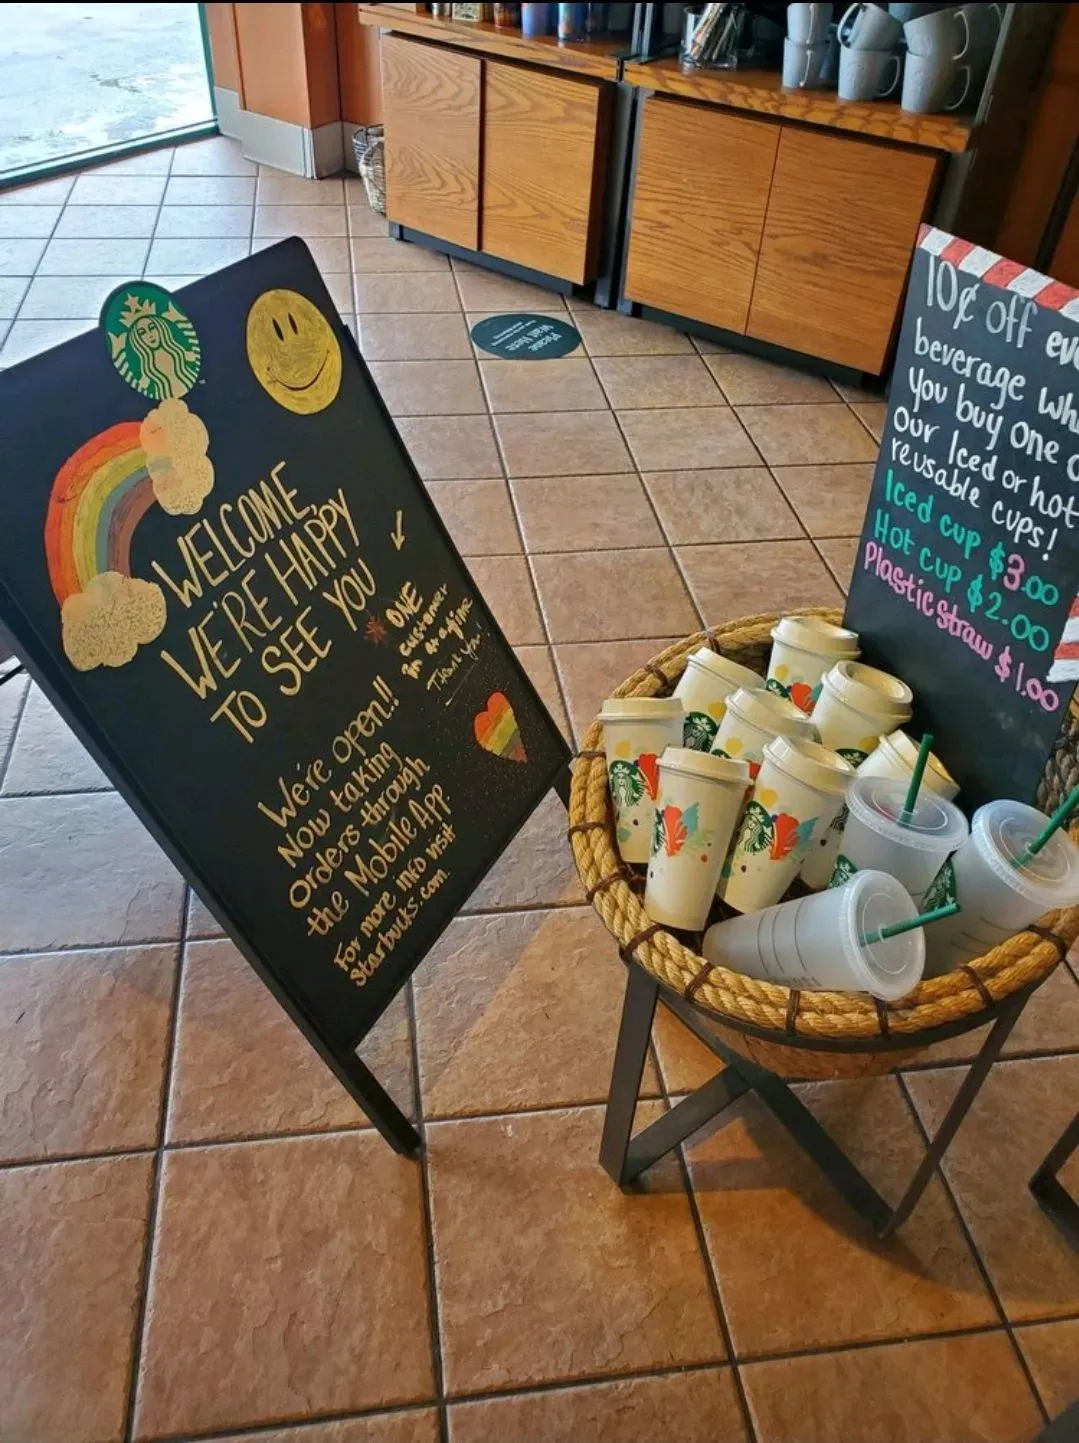 WELCOME,
WE'RE HAPPY
TO SEE YOU
ONE
customer
in at a time
Thank You!
We're open!!
Now taking
Orders through
the Mobile App.
For more info visit
Starbucks.com.
Please
Wait Here
10¢ off
beverage
You buy one
Our Iced or hot
reusable cups!
Iced cup $3.00
Hot cup $2.00
Plastic straw $1.00